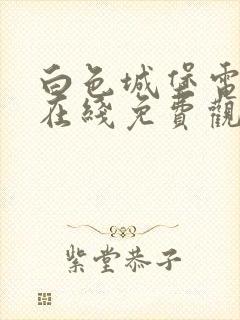 白色城堡電
在綫免費觀
紫堂恭子